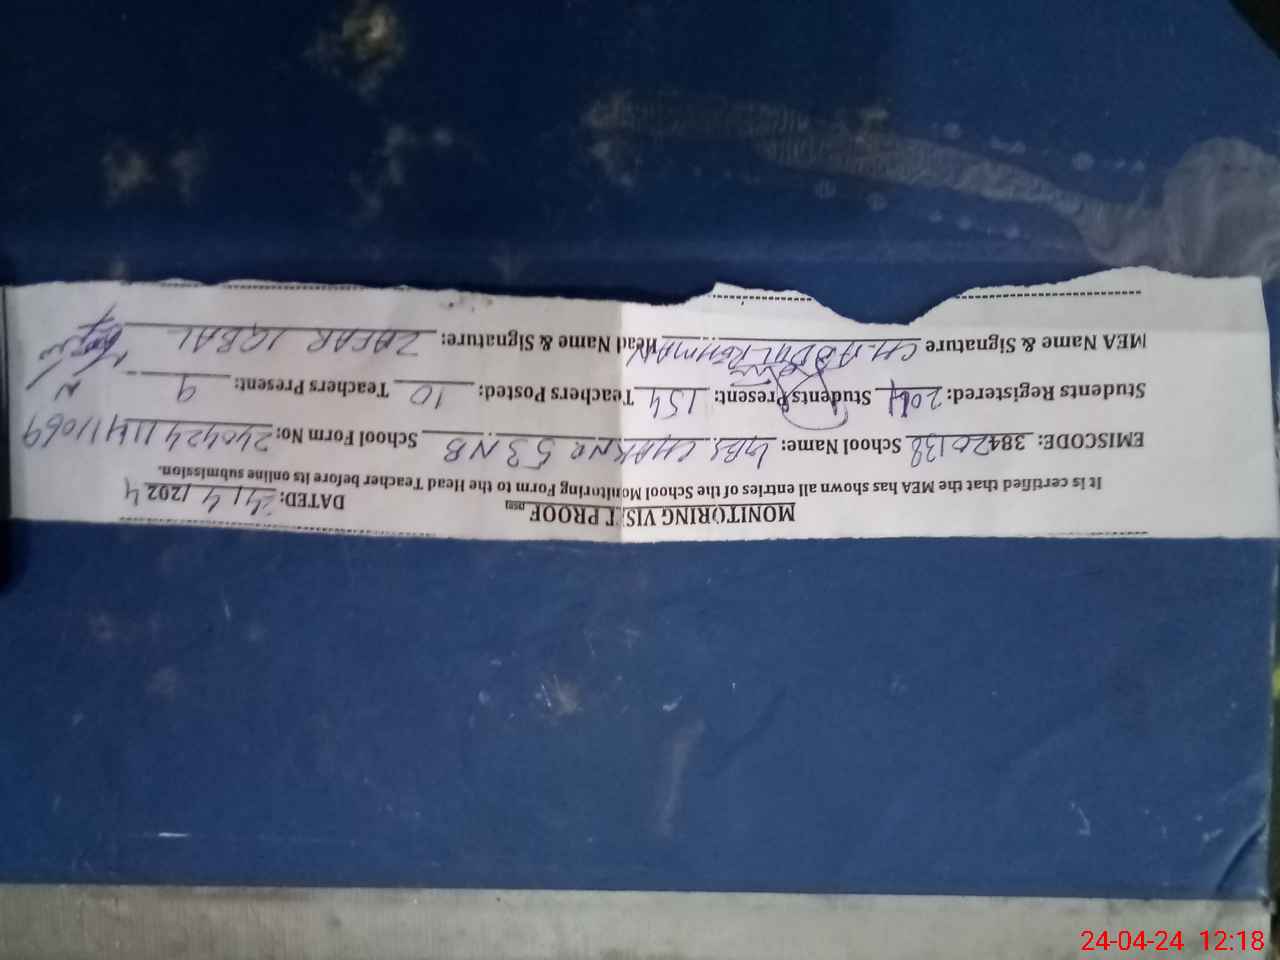 MONITORING VISIT PROOF
DATED: 24/4/2024
It is certified that the MEA has shown all entries of the School Monitoring Form to the Head Teacher before its online submission.
EMISCODE: 38420138 School Name: GBS CHAK NO 53 NB School Form No:
Students Registered: Students Present: 154 Teachers Posted: 10 Teachers Present: 9
MEA Name & Signature CH. ABDUL REHMAN Head Name & Signature: ZAFAR IQBAL
24-04-24 12:18